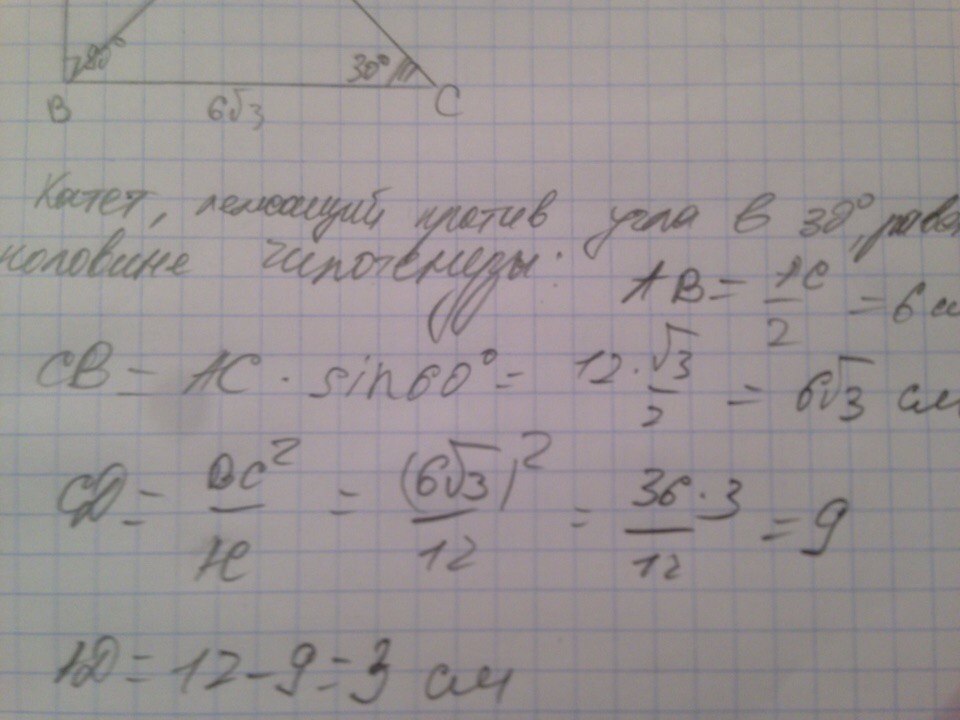 30° 30°
B 6√3 C
Катет, лежащий против угла в 30°, равен
половине гипотенузы.
AB = AC/2 = 6 см
CB = AC · sin60° = 12 · √3/2 = 6√3 см
CD = BC²/AC = (6√3)²/12 = 36·3/12 = 9
AD = 12 - 9 = 3 см